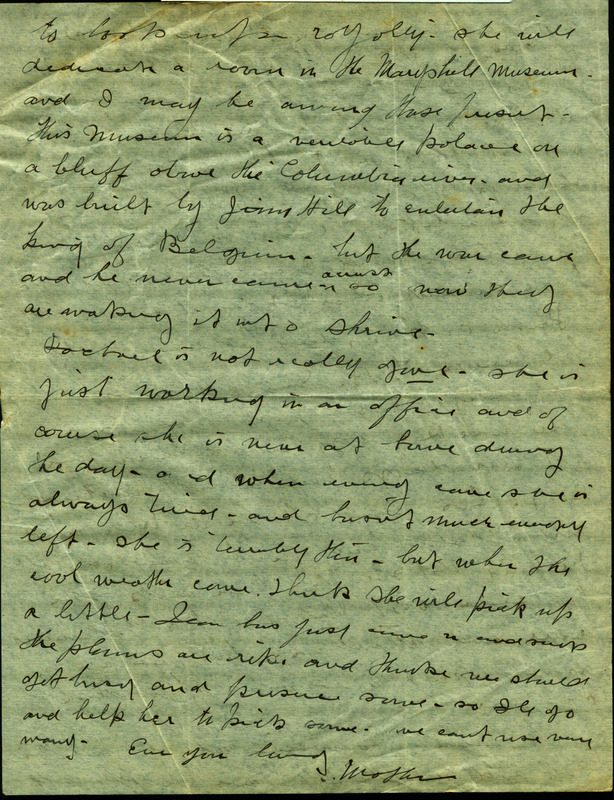 to look up royally. she will
dedicate a room in the Maryhill Museum.
and I may be among those present -
This Museum is a veritable palace on
a bluff above the Columbia river - and
was built by Jim Hill to entertain the
King of Belgium - but the war came
and he never came across so now they
are making it into a shrine -
is not really gone - she is
just working in an office and of
course she is never at home during
the day - and when evening came she is
always tired - and hasn't much energy
left - she is terribly thin - but when the
cool weather come I think she will pick up
a little - Jean has just come in and says
the plums are ripe and thinks we should
get busy and preserve some - so I'll go
and help her to pick some - we can't use very
many - Ever your loving
Mother